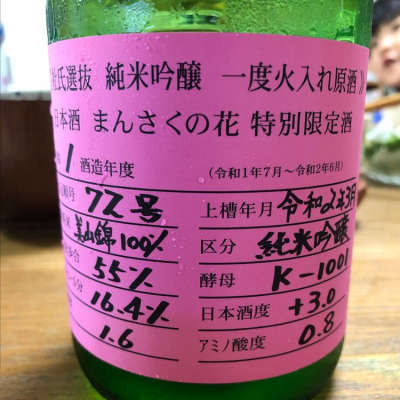 杜氏選抜 純米吟醸 一度火入れ原酒
日本酒 まんさくの花 特別限定酒
1 酒造年度 (令和1年7月~令和2年6月)
番号 72号 上槽年月 令和2年3月
美山錦100% 区分 純米吟醸
歩合 55% 酵母 K-1001
分 16.4% 日本酒度 +3.0
1.6 アミノ酸度 0.8